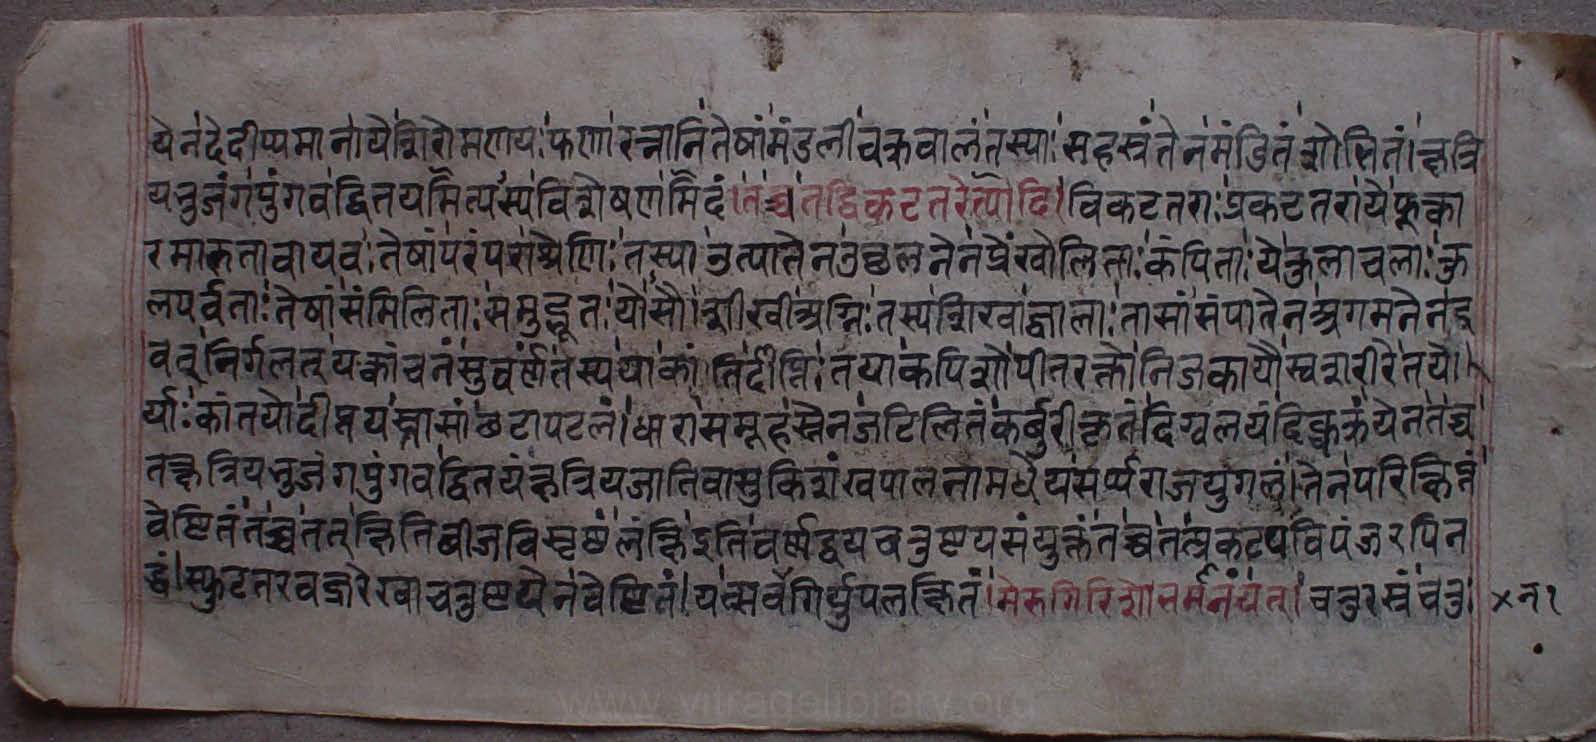 येन देदीप्यमाना ये शिरोमणयः फणारत्नानि तेषां मंडली चक्रवालं तस्याः सहस्रं तेन मंडितं शोभितं। क्षत्रि
यभुजंगपुंगवद्वितयमित्यस्य विशेषणमिदं। तच्च तद्विकटतरेत्यादि। विकटतराः प्रकटतरा ये फूत्का
रमारुता वायवः तेषां परंपरा श्रेणिः तस्या उत्पातेन उछलनेन प्रेंखोलिताः कंपिताः ये कुलाचलाः कु
लपर्वताः तेषां संमिलिताः समुद्भूतः योसौ। शीखी अग्निः तस्य शिखा ज्वालाः तासां संपातेन अगमनेन द्र
वत् निर्गलत् यकांचनं सुवर्णं तस्य या कांतिर्दीप्तिः तया कपिशौ पीतरक्तौ निजकायौ स्वशरीरे तयो।
र्याः कांतयो दीप्तयस्तासां छटापटलं। धारासमूहस्तेन जटिलितं कर्बुरीकृतं दिग्वलयं दिक्चक्रं येन तच्च
तत्क्षत्रियभुजंगपुंगवद्वितयं क्षत्रियजातिवासुकिशंखपालनामधेयसर्प्पराजयुगलं। तेन परिक्षिप्तं
वेष्टितं तच्च तत् क्षितिबीजविसृष्टं लंक्षि इति वर्णद्वयचतुष्टयसंयुक्तं तच्च तत्प्रकटपविपंजरपिन
द्धं। स्फुटतरवज्ररेखाचतुष्टयेन वेष्टितं। यत्सर्वे गिर्युपलक्षितं। मेरुगिरिशोतर्मनं च यत्। चतुरस्रं चतु।
× न १
www.vitragelibrary.org